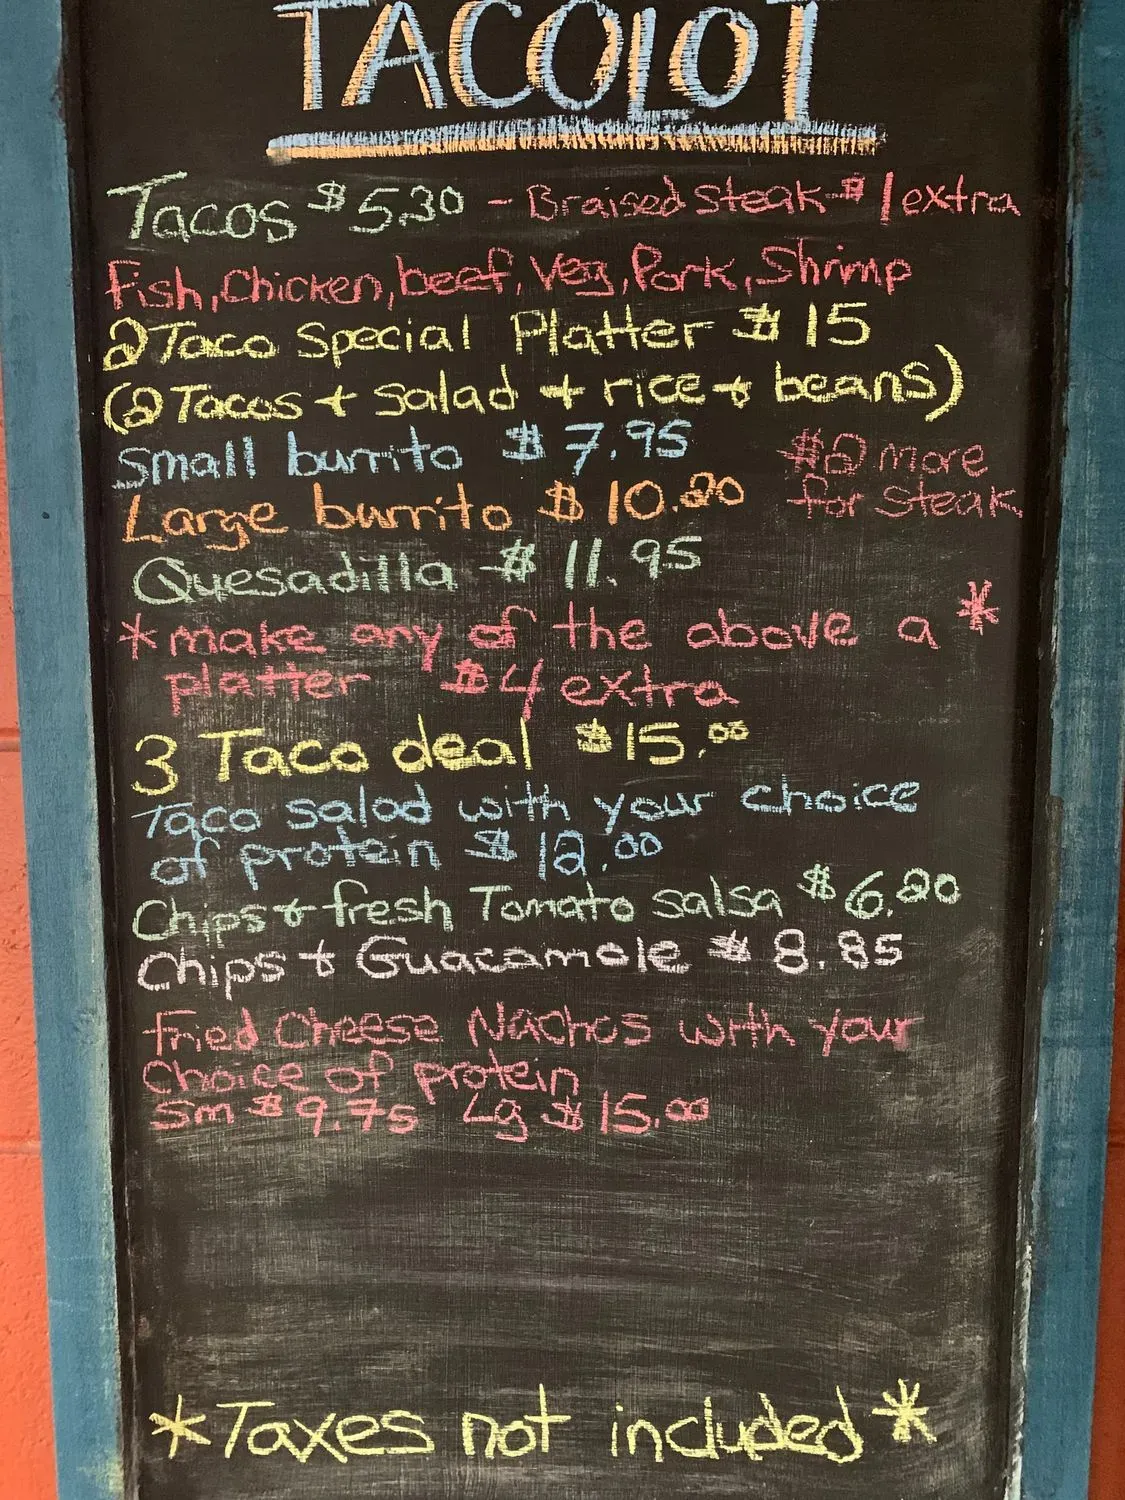 TACOLOT
Tacos $5.30 - Braised Steak $1 extra
Fish, Chicken, beef, Veg, Pork, Shrimp
2 Taco Special Platter $15
(2 Tacos + salad + rice + beans)
Small burrito $7.95
$2 more
for steak
Large burrito $10.20
Quesadilla $11.95
*make any of the above a *
platter $4 extra
3 Taco deal $15.00
Taco salad with your choice
of protein $12.00
Chips + fresh Tomato salsa $6.20
Chips + Guacamole $8.85
Fried Cheese Nachos with your
choice of protein
Sm $9.75 Lg $15.00
*Taxes not included*